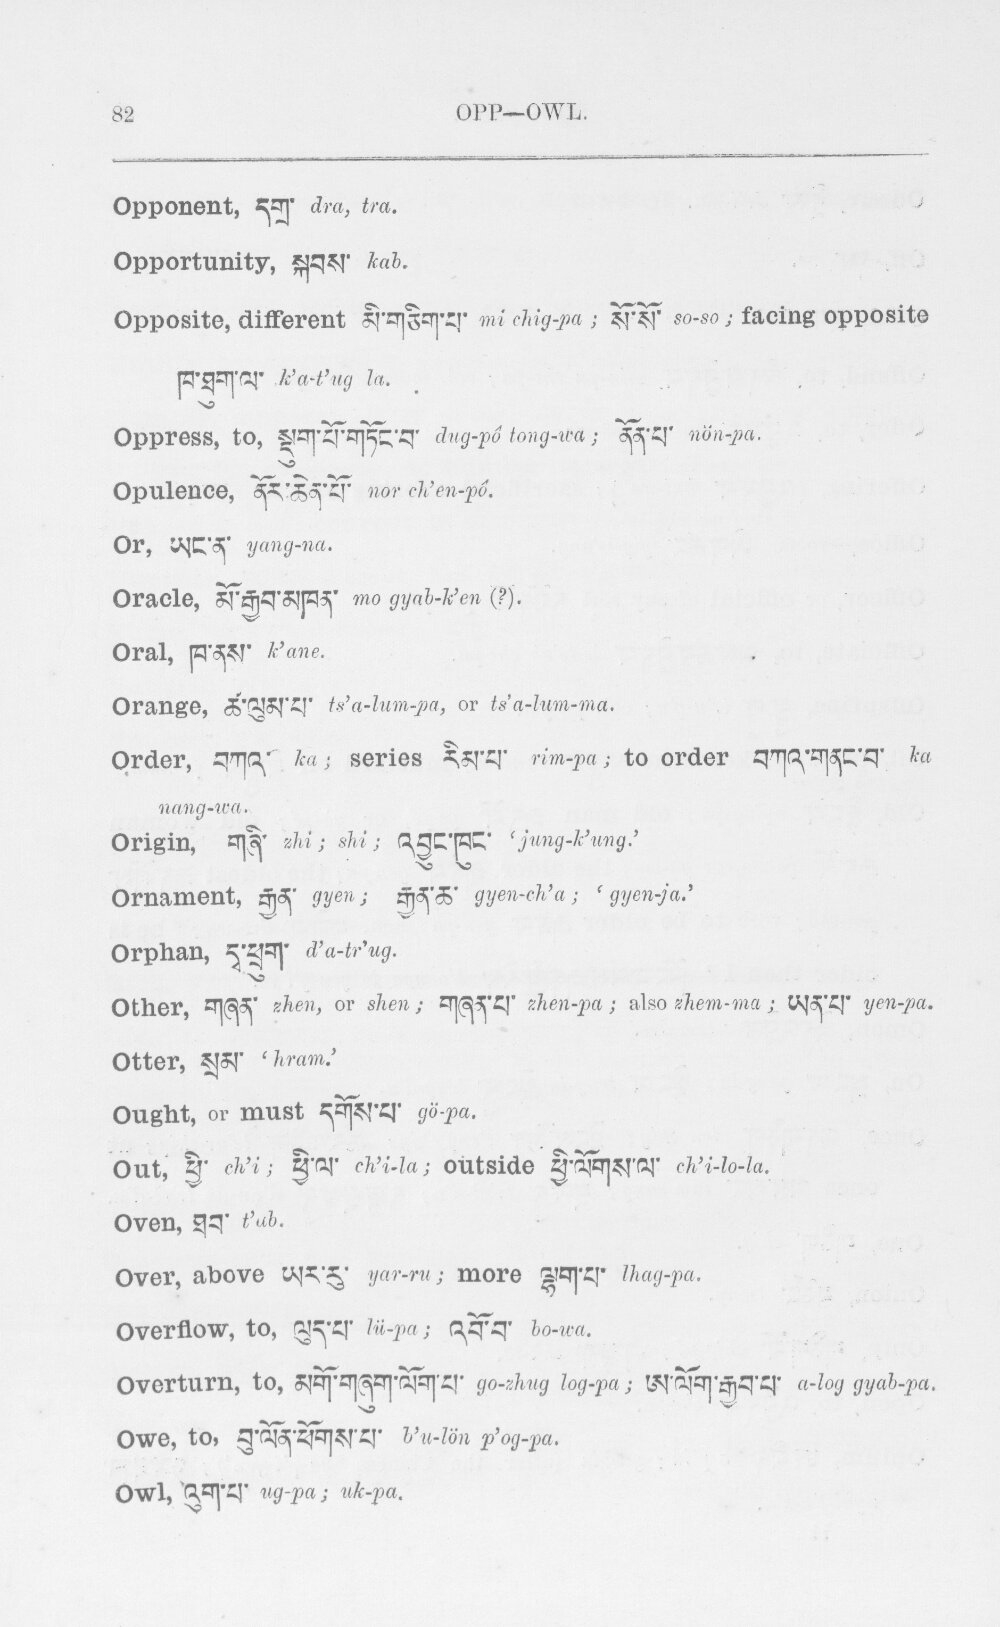 82
OPP—OWL.
Opponent, དགྲ་ dra, tra.
Opportunity, སྐབས་ kab.
Opposite, different མི་གཅིག་པ་ mi chig-pa ; སོ་སོ་ so-so ; facing opposite
ཁ་ཐུག་ལ་ k’a-t’ug la.
Oppress, to, སྡུག་པོ་གཏོང་བ་ dug-pó tong-wa ; ནོན་པ་ nön-pa.
Opulence, ནོར་ཆེན་པོ་ nor ch’en-pó.
Or, ཡང་ན་ yang-na.
Oracle, མོ་རྒྱབ་མཁན་ mo gyab-k’en (?).
Oral, ཁ་ནས་ k’ane.
Orange, ཚ་ལུམ་པ་ ts’a-lum-pa, or ts’a-lum-ma.
Order, བཀའ་ ka ; series རིམ་པ་ rim-pa ; to order བཀའ་གནང་བ་ ka
nang-wa.
Origin, གཞི་ zhi ; shi ; འབྱུང་ཁུང་ ‘jung-k’ung.’
Ornament, རྒྱན་ gyen ; རྒྱན་ཆ་ gyen-ch’a ; ‘gyen-ja.’
Orphan, དྭ་ཕྲུག་ d’a-tr’ug.
Other, གཞན་ zhen, or shen ; གཞན་པ་ zhen-pa ; also zhem-ma ; ཡན་པ་ yen-pa.
Otter, སྲམ་ ‘hram.’
Ought, or must དགོས་པ་ gö-pa.
Out, ཕྱི་ ch’i ; ཕྱི་ལ་ ch’i-la ; outside ཕྱི་ལོགས་ལ་ ch’i-lo-la.
Oven, ཐབ་ t’ab.
Over, above ཡར་རུ་ yar-ru ; more ལྷག་པ་ lhag-pa.
Overflow, to, ལུད་པ་ lü-pa ; འབོ་བ་ bo-wa.
Overturn, to, མགོ་གཞུག་ལོག་པ་ go-zhug log-pa ; ཨ་ལོག་རྒྱབ་པ་ a-log gyab-pa.
Owe, to, བུ་ལོན་ཕོགས་པ་ b’u-lön p’og-pa.
Owl, འུག་པ་ ug-pa ; uk-pa.